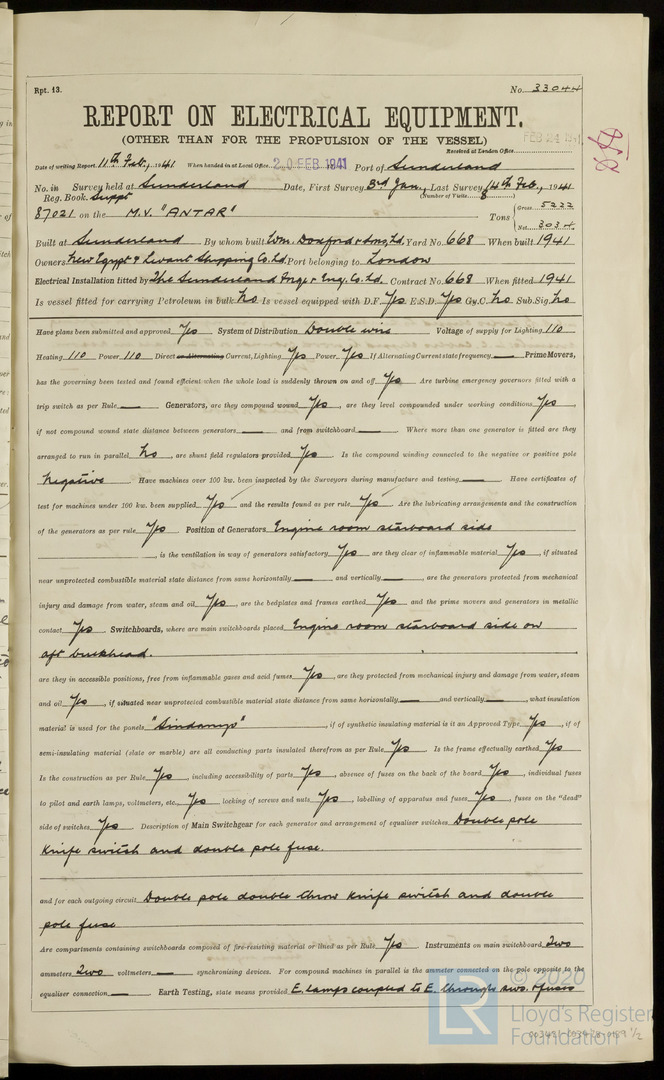 Rpt. 13.
No. 33044
REPORT ON ELECTRICAL EQUIPMENT.
(OTHER THAN FOR THE PROPULSION OF THE VESSEL)
FEB 24 1941
Received at London Office
Date of writing Report 11th Feb., 1941 When handed in at Local Office 20 FEB 1941 Port of Sunderland
No. in Survey held at Sunderland Date, First Survey 3rd Jan., Last Survey 14th Feb., 1941
Reg. Book. Suppt (Number of Visits 8)
87021 on the M.V. "ANTAR" Tons { Gross 5222
Net 3034
Built at Sunderland By whom built Wm. Doxford & Sons, Ld. Yard No. 668 When built 1941
Owners New Egypt & Levant Shipping Co. Ld. Port belonging to London
Electrical Installation fitted by The Sunderland Forge & Eng. Co. Ld. Contract No. 668 When fitted 1941
Is vessel fitted for carrying Petroleum in bulk No Is vessel equipped with D.F. Yes E.S.D. Yes Gy.C. No Sub.Sig. No
Have plans been submitted and approved Yes System of Distribution Double wire Voltage of supply for Lighting 110
Heating 110 Power 110 Direct or Alternating Current, Lighting Yes Power Yes If Alternating Current state frequency — Prime Movers,
has the governing been tested and found efficient when the whole load is suddenly thrown on and off Yes Are turbine emergency governors fitted with a
trip switch as per Rule — Generators, are they compound wound Yes, are they level compounded under working conditions Yes
if not compound wound state distance between generators — and from switchboard — Where more than one generator is fitted are they
arranged to run in parallel No, are shunt field regulators provided Yes Is the compound winding connected to the negative or positive pole
Negative Have machines over 100 kw. been inspected by the Surveyors during manufacture and testing — Have certificates of
test for machines under 100 kw. been supplied Yes and the results found as per rule Yes Are the lubricating arrangements and the construction
of the generators as per rule Yes Position of Generators Engine room starboard side
, is the ventilation in way of generators satisfactory Yes are they clear of inflammable material Yes, if situated
near unprotected combustible material state distance from same horizontally — and vertically —, are the generators protected from mechanical
injury and damage from water, steam and oil Yes, are the bedplates and frames earthed Yes and the prime movers and generators in metallic
contact Yes Switchboards, where are main switchboards placed Engine room starboard side on
aft bulkhead.
are they in accessible positions, free from inflammable gases and acid fumes Yes, are they protected from mechanical injury and damage from water, steam
and oil Yes, if situated near unprotected combustible material state distance from same horizontally — and vertically —, what insulation
material is used for the panels "Sindanyo", if of synthetic insulating material is it an Approved Type Yes, if of
semi-insulating material (slate or marble) are all conducting parts insulated therefrom as per Rule Yes Is the frame effectually earthed Yes
Is the construction as per Rule Yes, including accessibility of parts Yes, absence of fuses on the back of the board Yes, individual fuses
to pilot and earth lamps, voltmeters, etc. Yes locking of screws and nuts Yes, labelling of apparatus and fuses Yes, fuses on the "dead"
side of switches Yes Description of Main Switchgear for each generator and arrangement of equaliser switches Double pole
Knife switch and double pole fuse.
and for each outgoing circuit Double pole double throw knife switch and double
pole fuse
Are compartments containing switchboards composed of fire-resisting material or lined as per Rule Yes Instruments on main switchboard Two
ammeters Two voltmeters — synchronising devices. For compound machines in parallel is the ammeter connected on the pole opposite to the
equaliser connection — Earth Testing, state means provided E. Lamps coupled to E. through sws. & fuses
© 2020
LR
Lloyd's Register
Foundation